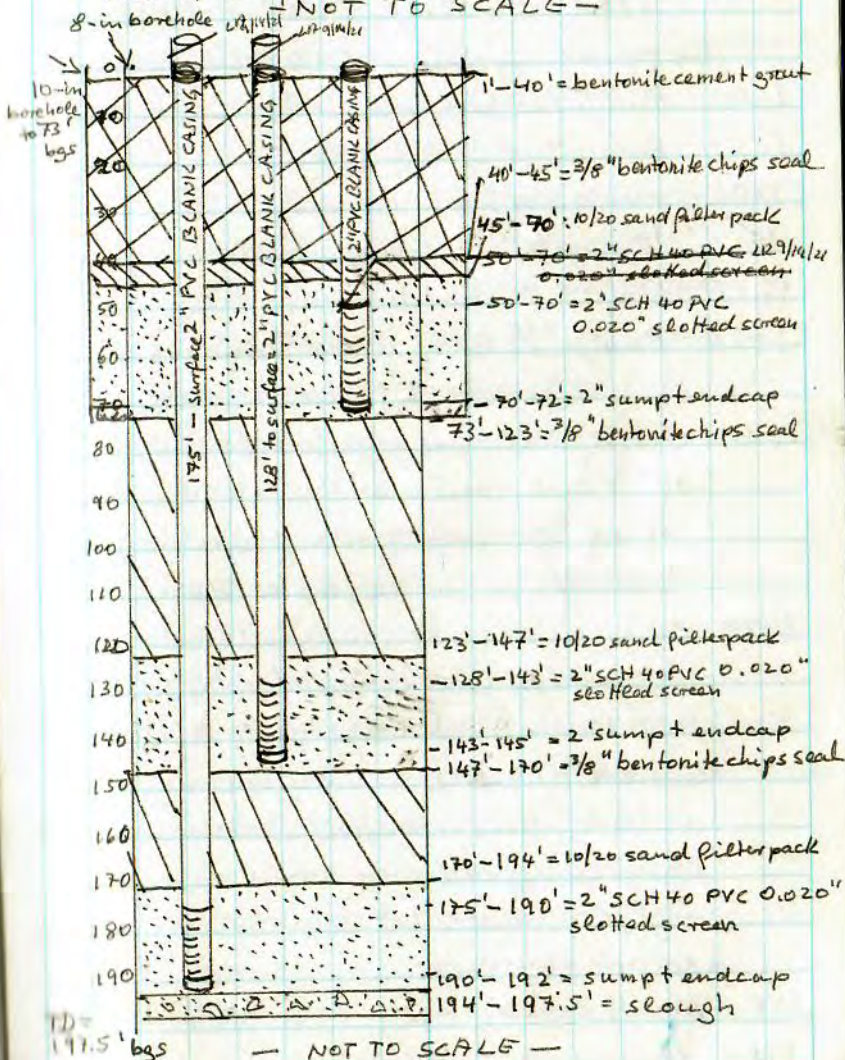 — NOT TO SCALE —
8-in borehole
10-in
borehole
to 73'
bgs
0
10
20
30
40
50
60
70
80
90
100
110
120
130
140
150
160
170
180
190
175' - surface 2" PVC BLANK CASING
128' to surface = 2" PVC BLANK CASING
2" PVC BLANK CASING
1'-40' = bentonite cement grout
40'-45' = 3/8" bentonite chips seal
45'-70': 10/20 sand filter pack
50'-70' = 2" SCH 40 PVC 9/14/21
0.020" slotted screen
-50'-70' = 2" SCH 40 PVC
0.020" slotted screen
-70'-72' = 2" sump + endcap
73'-123' = 3/8" bentonite chips seal
123'-147' = 10/20 sand filterpack
-128'-143' = 2" SCH 40 PVC 0.020"
slotted screen
-143'-145' = 2' sump + endcap
-147'-170' = 3/8" bentonite chips seal
170'-194' = 10/20 sand filter pack
-175'-190' = 2" SCH 40 PVC 0.020"
slotted screen
190'-192' = sump + endcap
194'-197.5' = slough
TD=
197.5' bgs
— NOT TO SCALE —